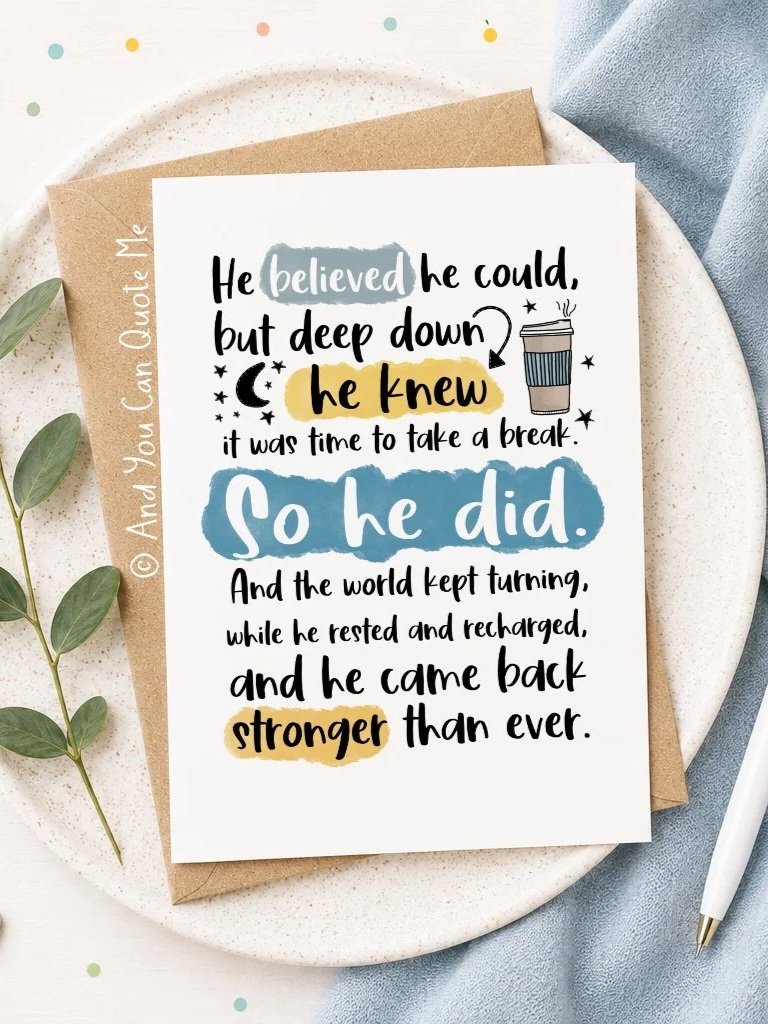 He believed he could,
but deep down
he knew
it was time to take a break.
So he did.
And the world kept turning,
while he rested and recharged,
and he came back
stronger than ever.
© And You Can Quote Me